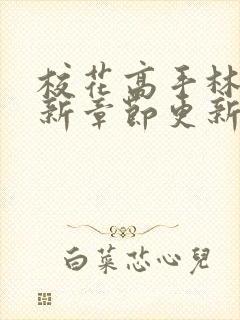 校花高手林
新章節更新
白菜芯心兒